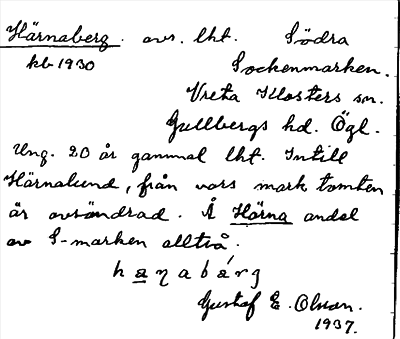 Härnaberg. avs. lht. Södra
kb 1930 Sockenmarken.
Vreta Klosters sn.
Gullbergs hd. Ögl.
Ung. 20 år gammal lht. Intill
Härnalund, från vars mark tomten
är avsöndrad. Å Härna andel
av S-marken alltså.
hanabárg
Gustaf E. Olsson.
1937.